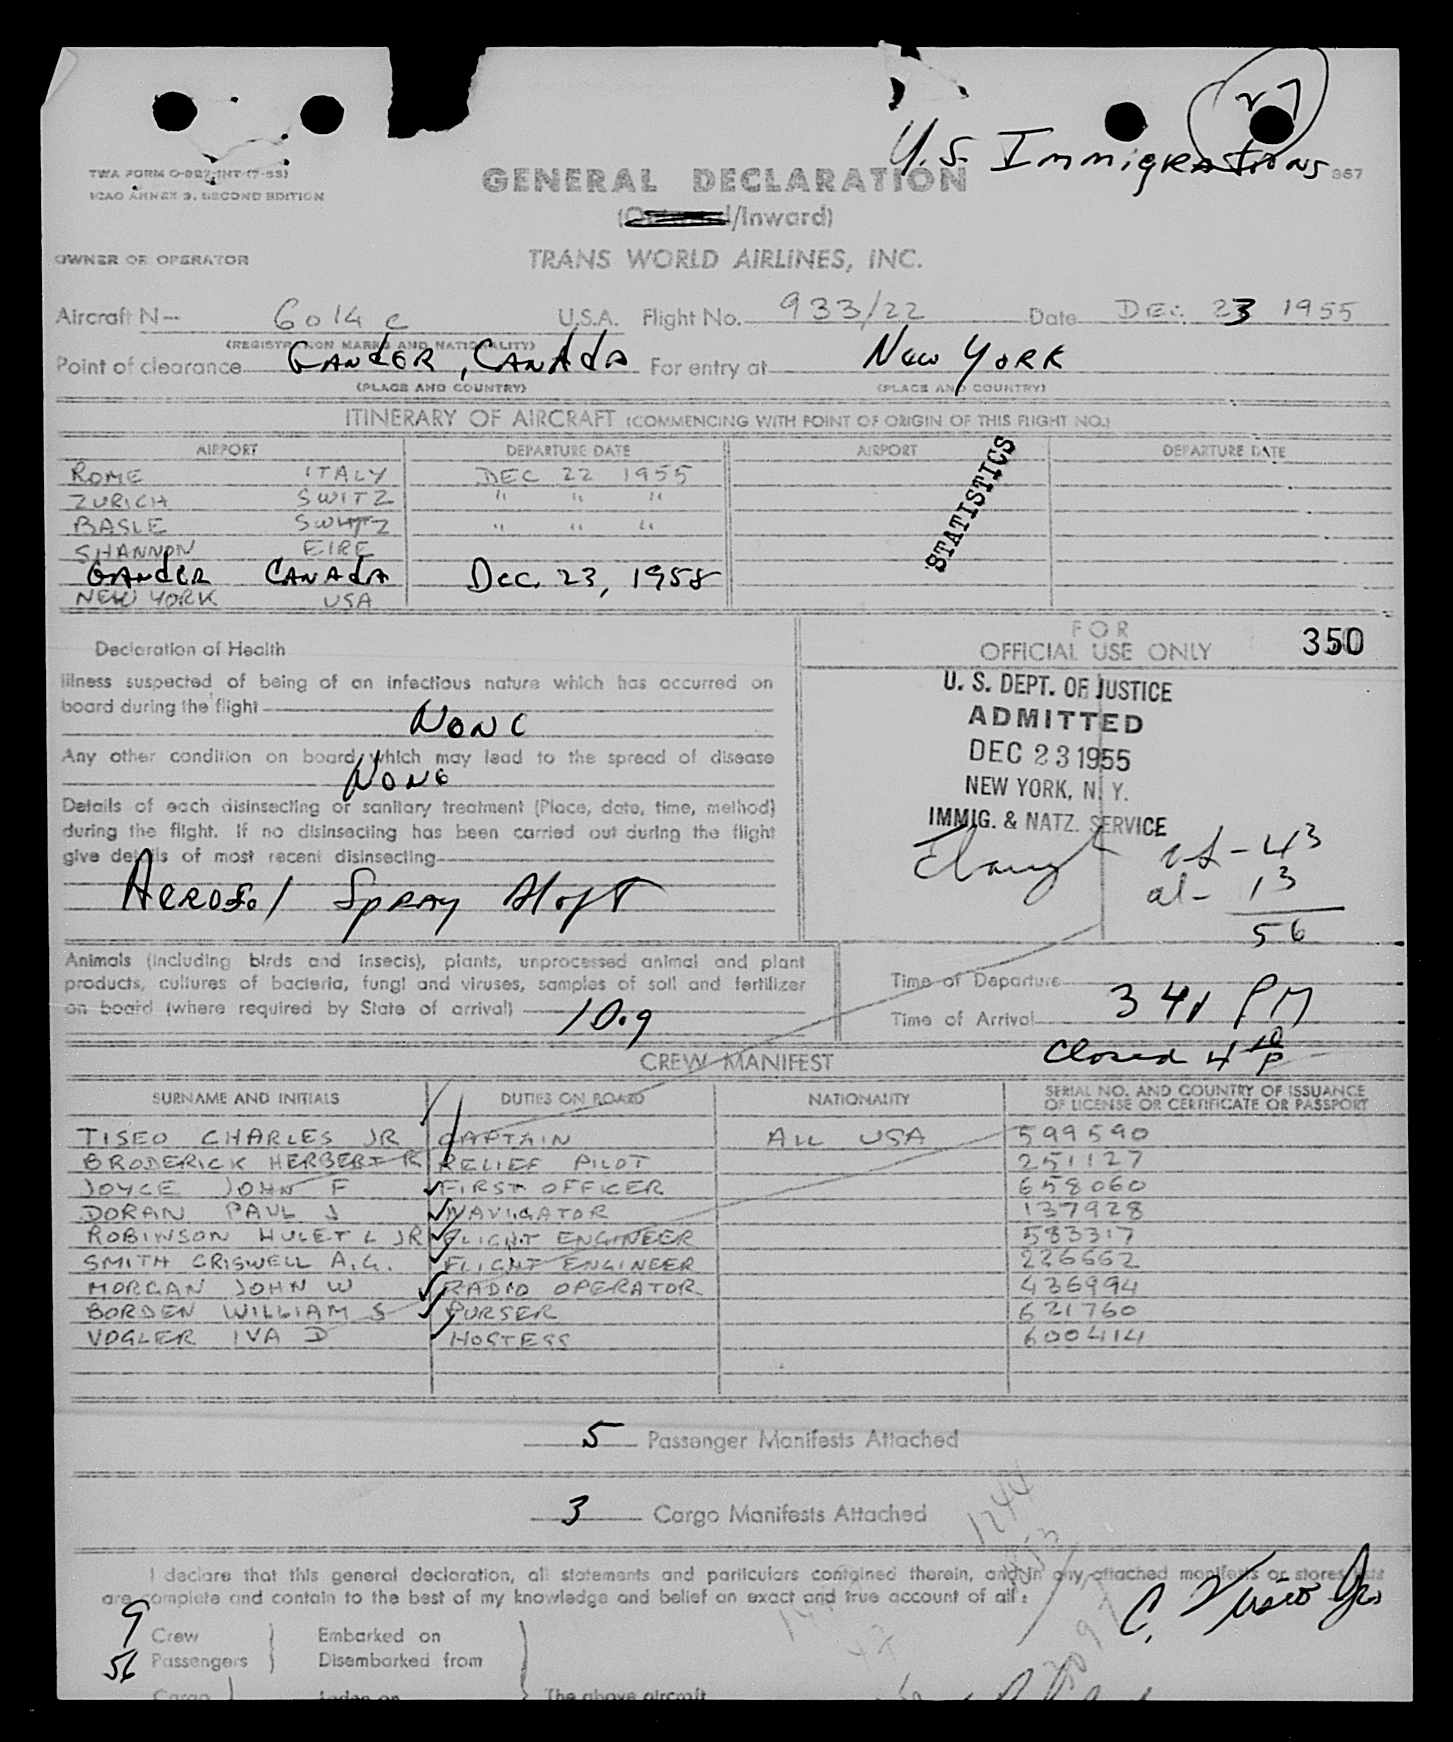 27
U.S. Immigrations
TWA FORM O-927-INT (7-55)
ICAO ANNEX 9, SECOND EDITION
GENERAL DECLARATION
957
(/Inward)
OWNER OR OPERATOR TRANS WORLD AIRLINES, INC.
Aircraft N— 6014 C U.S.A. Flight No. 933/22 Date DEC. 23 1955
(REGISTRATION MARKS AND NATIONALITY)
Point of clearance GANdER, CANAdA For entry at NEW YORK
(PLACE AND COUNTRY) (PLACE AND COUNTRY)
ITINERARY OF AIRCRAFT (COMMENCING WITH POINT OF ORIGIN OF THIS FLIGHT NO.)
AIRPORT DEPARTURE DATE AIRPORT DEPARTURE DATE
ROME ITALY DEC 22 1955
ZURICH SWITZ " " "
BASLE SWITZ " " "
SHANNON EIRE
GANdER CANAdA Dec. 23, 1955
NEW YORK USA
STATISTICS
FOR
OFFICIAL USE ONLY 350
Declaration of Health
Illness suspected of being of an infectious nature which has occurred on
board during the flight
NONE
Any other condition on board which may lead to the spread of disease
NONE
Details of each disinsecting or sanitary treatment (Place, date, time, method)
during the flight. If no disinsecting has been carried out during the flight
give details of most recent disinsecting
AEROSOl SPRAY Aloft
U. S. DEPT. OF JUSTICE
ADMITTED
DEC 23 1955
NEW YORK, N. Y.
IMMIG. & NATZ. SERVICE
43
al- 13
56
Animals (including birds and insects), plants, unprocessed animal and plant
products, cultures of bacteria, fungi and viruses, samples of soil and fertilizer
on board (where required by State of arrival)
Time of Departure
Time of Arrival 341 PM
Closed 4 10 P
CREW MANIFEST
SURNAME AND INITIALS DUTIES ON BOARD NATIONALITY SERIAL NO. AND COUNTRY OF ISSUANCE
OF LICENSE OR CERTIFICATE OR PASSPORT
TISEO CHARLES JR CAPTAIN ALL USA 599590
BRODERICK HERBERT R RELIEF PILOT 251127
JOYCE JOHN F FIRST OFFICER 658060
DORAN PAUL J NAVIGATOR 137928
ROBINSON HULET L JR FLIGHT ENGINEER 583317
SMITH CRISWELL A.G. FLIGHT ENGINEER 226662
MORGAN JOHN W RADIO OPERATOR 436994
BORDEN WILLIAM S PURSER 621760
VOGLER IVA D HOSTESS 600414
5 Passenger Manifests Attached
3 Cargo Manifests Attached
1244
I declare that this general declaration, all statements and particulars contained therein, and in any attached manifests or stores lists
are complete and contain to the best of my knowledge and belief an exact and true account of all:
C. Tiseo Jr.
9 Crew } Embarked on
56 Passengers } Disembarked from
Cargo } Laden on } The above aircraft